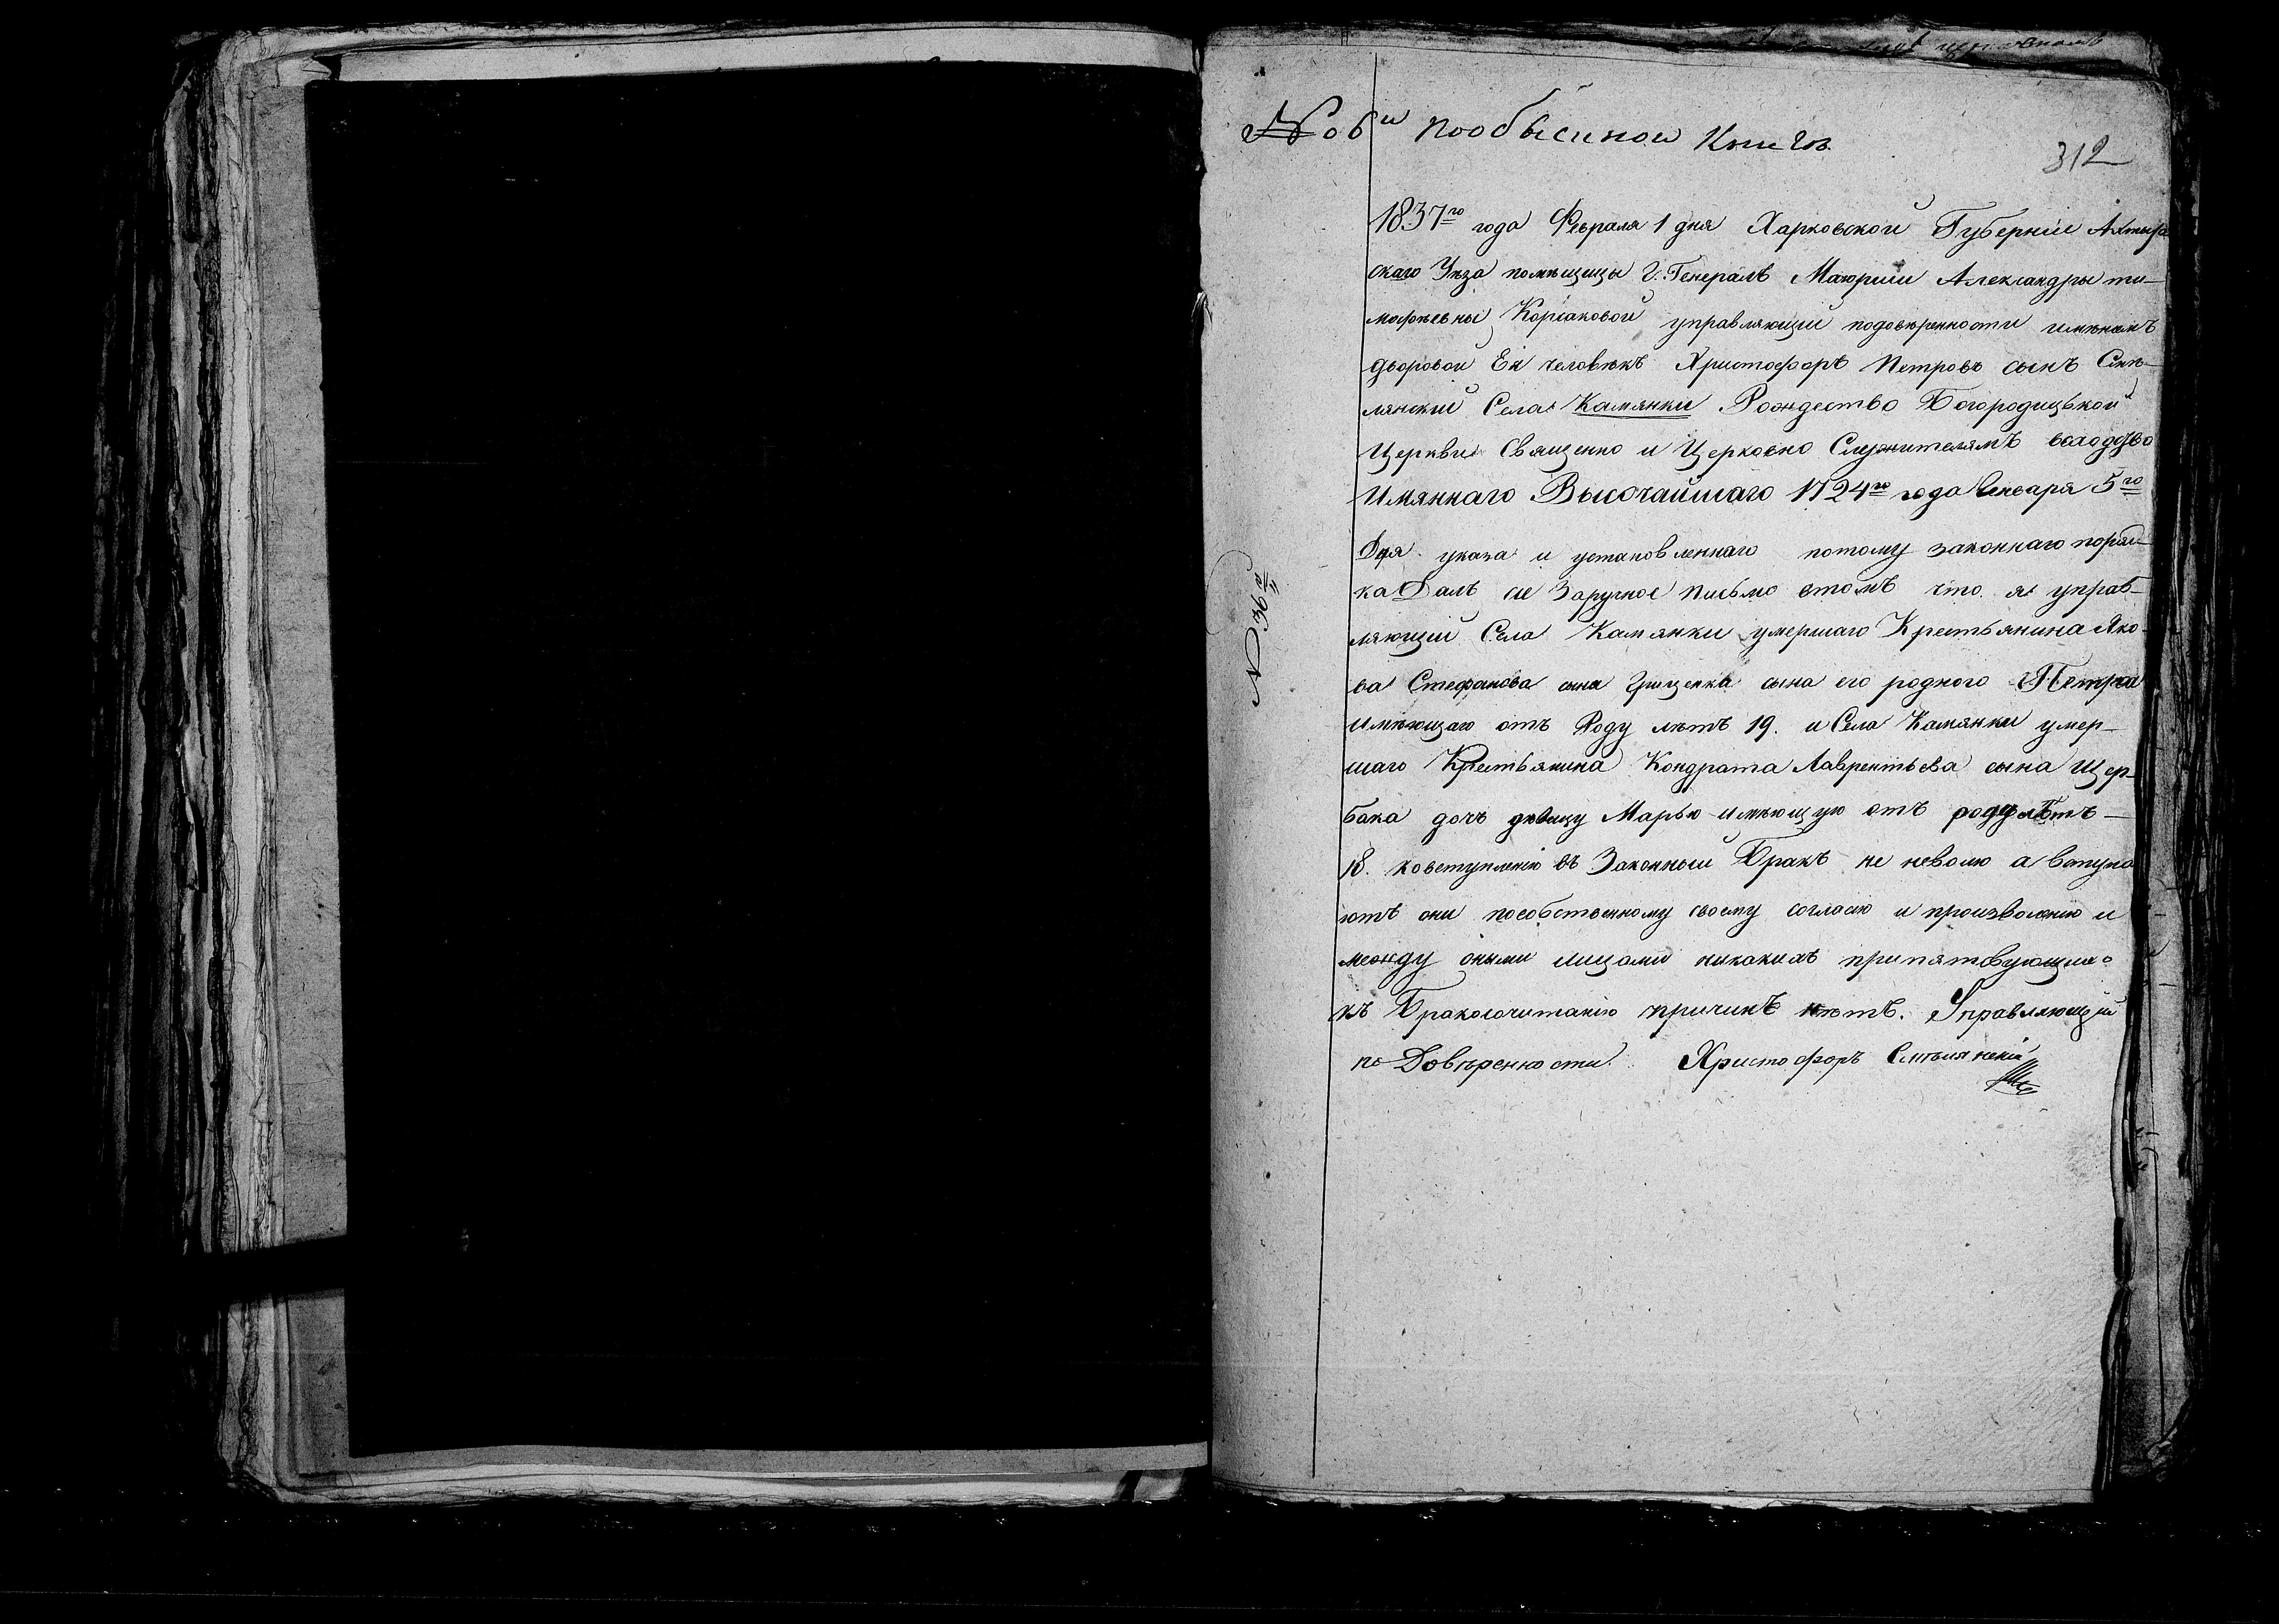 № 6й пообысиной Книгѣ
312
1837го года Февраля 1 дня Харковской Губерніи Ахтыр
скаго Уѣза помѣщицы Г. Генералъ Маюрши Александры ти-
мофѣевны управляющий подовѣренности имѣнамъ
дворовой Ея человѣкъ Христофоръ Петровъ сынъ Смѣ-
лянский Села Камянки Рождество Богородицькой
Церкви Священно и Церковно Служителямъ
Имяннаго Высочайшаго 1724го года Генваря 5го
Дня указа и установленнаго потому законнаго поряд
ка Далъ сіе Заручное письмо втомъ что я управ-
ляющій Села Камянки умершаго Крестьянина Яко-
ва Стефанова сына Грищенка сына его родного Петра
имѣющаго отъ Роду лѣтъ 19. и Села Камянки умер-
шаго Крестьянина Кондрата Лаврентьева сына Щер-
бака дочь дѣвицу Марью имѣющую отъ роду лѣтъ-
18. ковступленію въ Законный Бракъ не неволю а вступа
ютъ они пособственному своему согласію и произволенію и
между оными лицами никакихъ припятствующих
къ Бракосочитанію причинъ нѣтъ. Управляющій
по Довѣренности Христофоръ Смѣлянскій
№ 36й